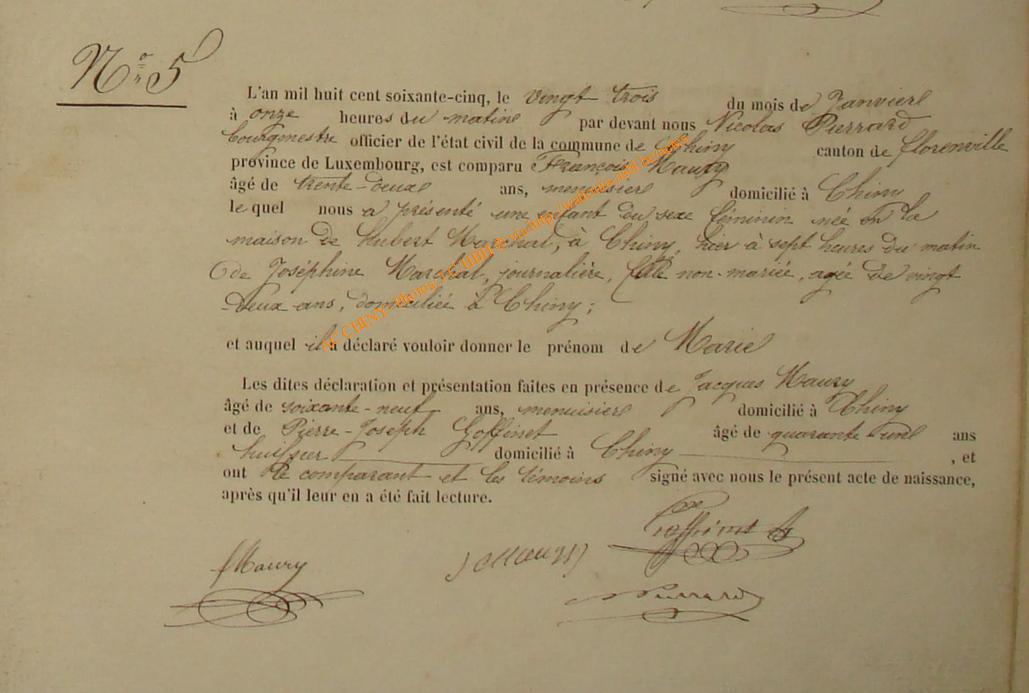 N° 5
L'an mil huit cent soixante-cinq, le vingt trois du mois de Janvier
à onze heures du matin par devant nous Nicolas Pierrard
bourgmestre officier de l'état civil de la commune de Chiny canton de florenville
province de Luxembourg, est comparu François Maury
âgé de trente-deux ans, menuisier domicilié à Chiny
le quel nous a présenté une enfant du sexe féminin née en la
maison de hubert Marchal, à Chiny, hier à sept heures du matin
de Joséphine Marchal, journalière, fille non-mariée, agée de vingt
deux ans, domiciliée à Chiny;
et auquel il a déclaré vouloir donner le prénom de Marie
Les dites déclaration et présentation faites en présence de Jacques Maury
âgé de soixante-neuf ans, menuisier domicilié à Chiny
et de Pierre-Joseph Goffinet âgé de quarante un ans
huissier domicilié à Chiny , et
ont le comparant et les témoins signé avec nous le présent acte de naissance,
après qu'il leur en a été fait lecture.
Goffinet
fMaury J Maury
NPierrard